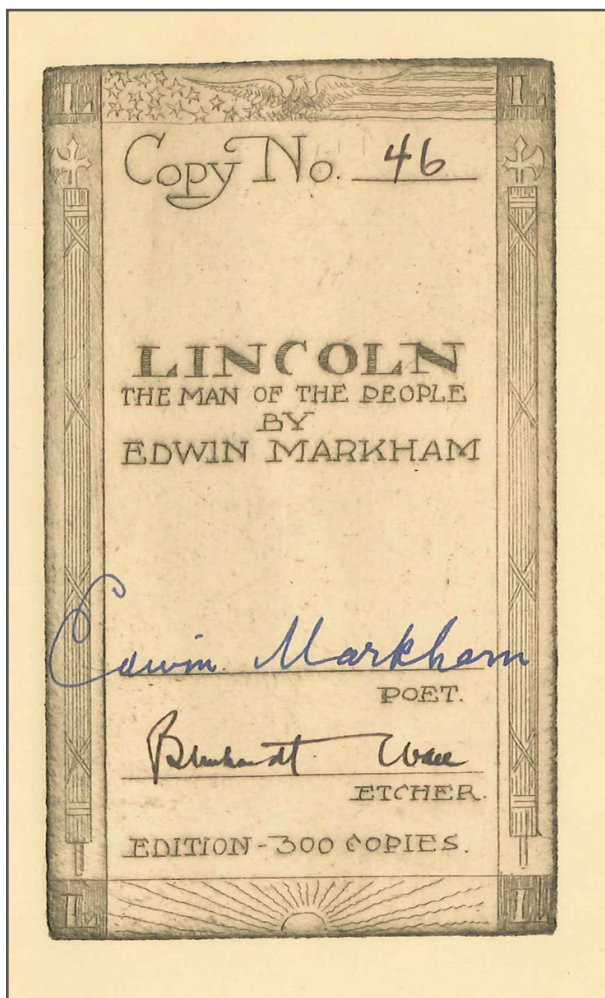 L L
Copy No. 46
LINCOLN
THE MAN OF THE PEOPLE
BY
EDWIN MARKHAM
Edwin Markham
POET.
Bernhardt Wall
ETCHER.
EDITION - 300 COPIES.
L L